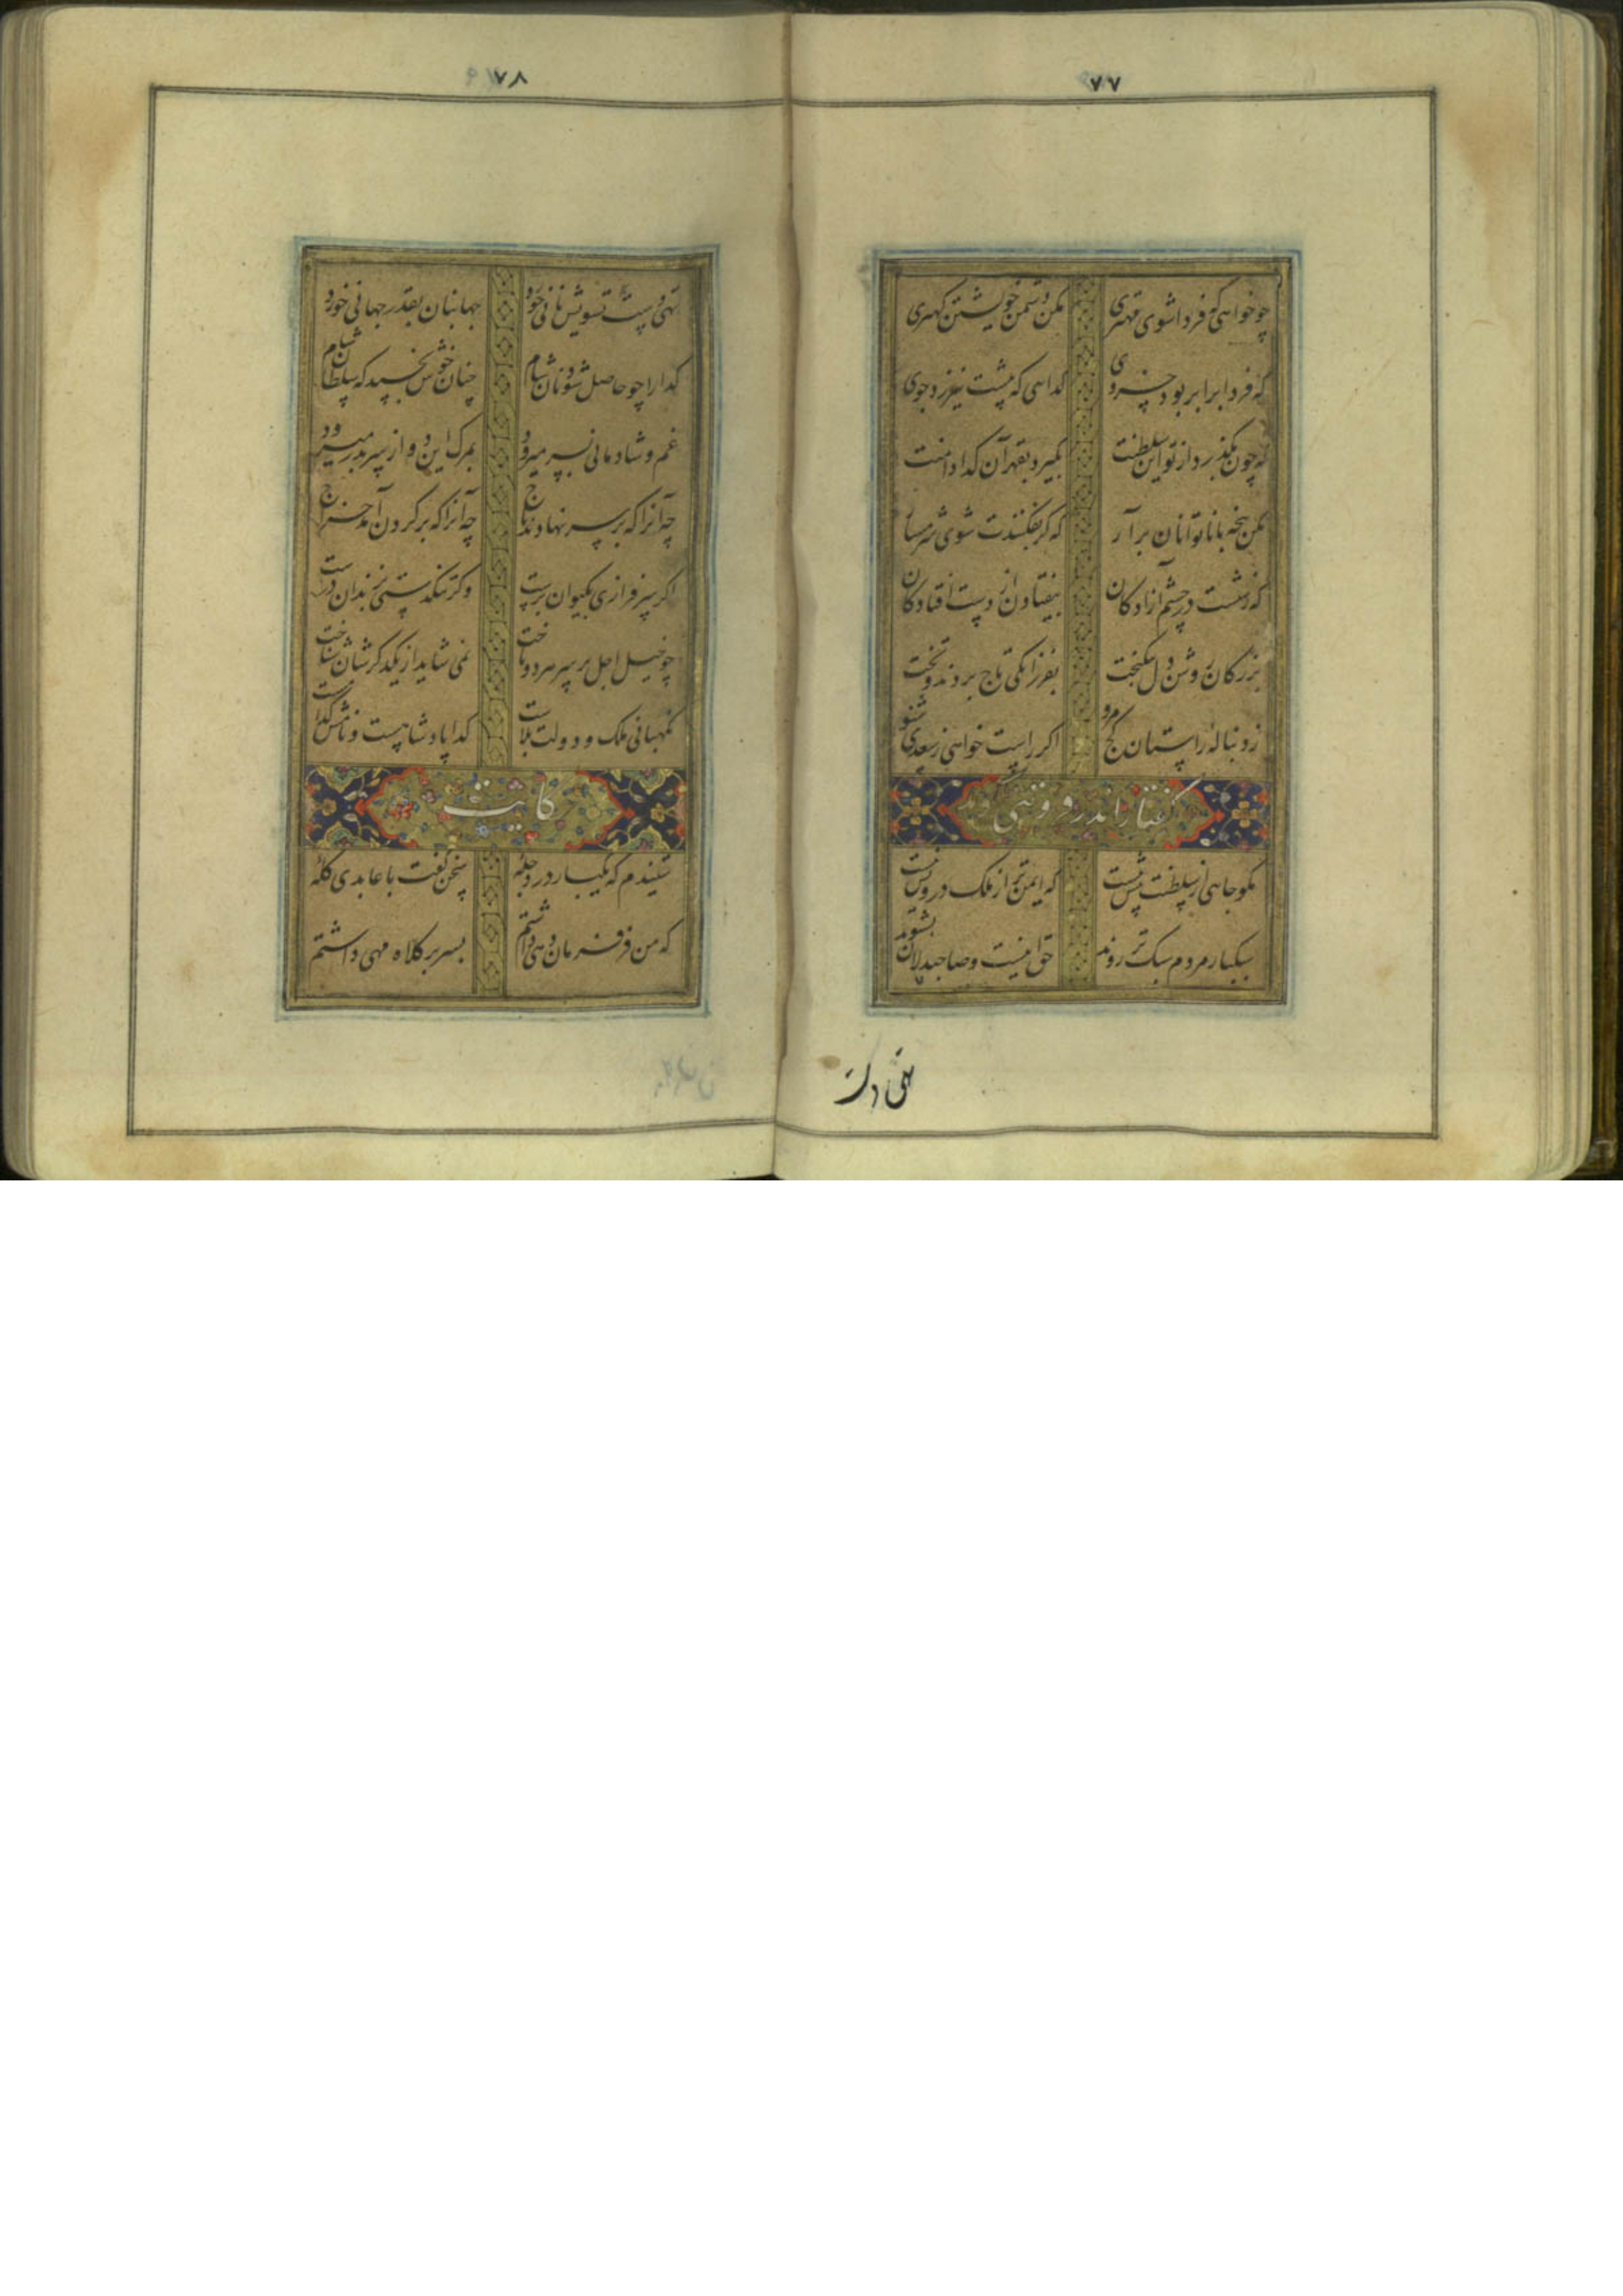 ۷۷
چو خواهی که فردا شوی مهتری مکن دشمن خویشتن کهتری
که فردا برابر بود خسروی گدایی که پیشت نیرزد جوی
که چون بگذرد از تو این سلطنت بگیرد بقهر آن گدا دامنت
مکن پنجه با ناتوانان برآر که گر بفکنندت شوی شرمسار
که زشتست در چشم آزادگان بیفتادن از دست افتادگان
بزرگان روشن دل نیکبخت بفرزانگی تاج بردند و تخت
ز دنباله راستان کج مرو اگر راست خواهی ز سعدی شنو
گفتار اندر
مگو جاهی از سلطنت پیش نیست که ایمن تر از ملک درویش نیست
سبکبار مردم سبک تر روند حق اینست و صاحبدلان بشنوند
تهی دست
۷۸
تهی دست تشویش نانی خورد جهانبان بقدر جهانی خورد
گدا را چو حاصل شود نان شام چنان خوش بخسبد که سلطان شام
غم و شادمانی بسر میرود بمرگ این دو از سر بدر میرود
چه آنرا که بر سر نهادند تاج چه آنرا که بر گردن آمد خراج
اگر سرفرازی بکیوان برست وگر تنگدستی بزندان درست
چو خیل اجل بر سر هر دو تاخت نمی شاید از یکدگرشان شناخت
نگهبانی ملک و دولت بلاست گدا پادشاهست و نامش گداست
حکایت
شنیدم که یکبار در دجله سخن گفت با عابدی کله
که من فر فرماندهی داشتم بسر بر کلاه مهی داشتم